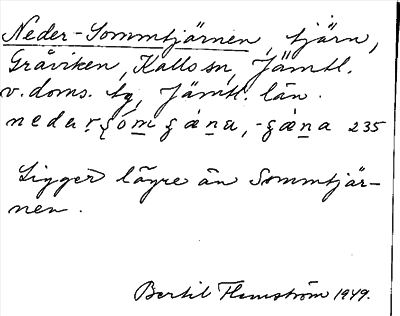 Neder-Sommtjärnen, tjärn,
Gråviken, Kalls sn, Jämtl.
v. doms. tg, Jämtl. län.
235
Ligger lägre än Sommtjär-
nen.
Bertil Flemström 1949.